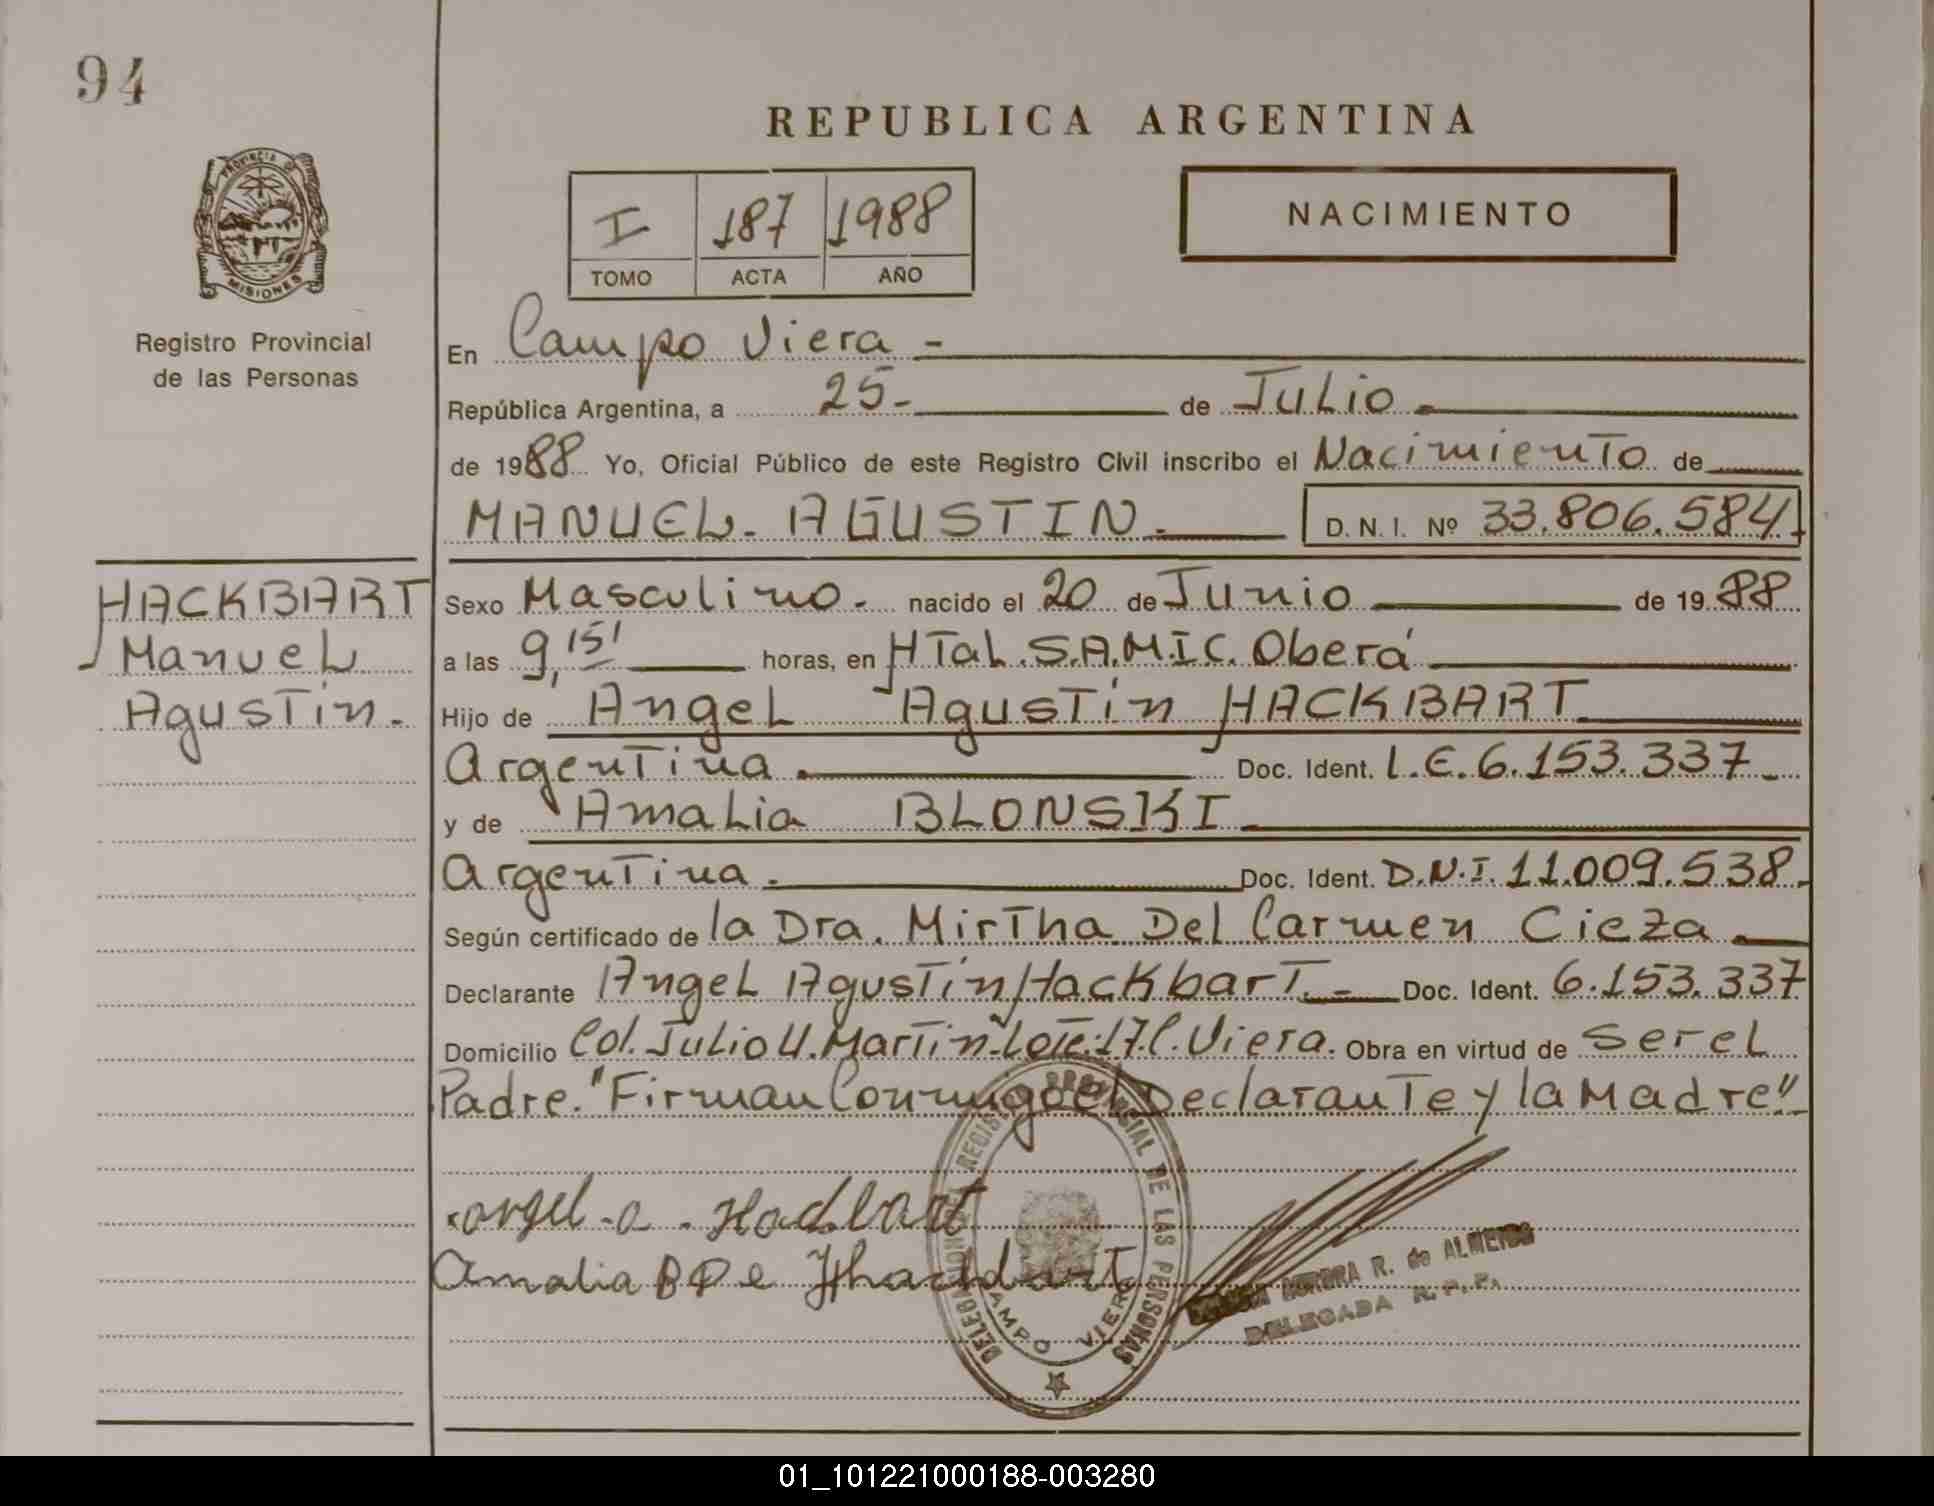 94
REPUBLICA ARGENTINA
PROVINCIA DE
MISIONES
Registro Provincial
de las Personas
I 187 1988
TOMO ACTA AÑO
NACIMIENTO
En Campo Viera -
República Argentina, a 25- de Julio.
de 1988 Yo, Oficial Público de este Registro Civil inscribo el Nacimiento de
MANUEL. AGUSTIN. D. N. I. Nº 33.806.584.
HACKBART
Manuel
Agustin.
Sexo Masculino. nacido el 20 de Junio de 1988
a las 9,15' horas, en HTal. S.A.M.I.C. Oberá
Hijo de Angel Agustin HACKBART
Argentina. Doc. Ident. L.E. 6.153.337-
y de Amalia BLONSKI
Argentina. Doc. Ident. D.N.I. 11.009.538.
Según certificado de la Dra. Mirtha Del Carmen Cieza
Declarante Angel Agustin Hackbart. - Doc. Ident. 6.153.337
Domicilio Col. Julio U. Martin-Lote:17.C. Viera. Obra en virtud de Ser el
Padre. "Firman Conmigo el Declarante y la Madre"
DELEGACION REGISTRO PROVINCIAL DE LAS PERSONAS
CAMPO VIERA
angel - a. Hackbart
Amalia B De Hackbart
AURORA R. de ALMEIDA
DELEGADA R. P. P.
01_101221000188-003280